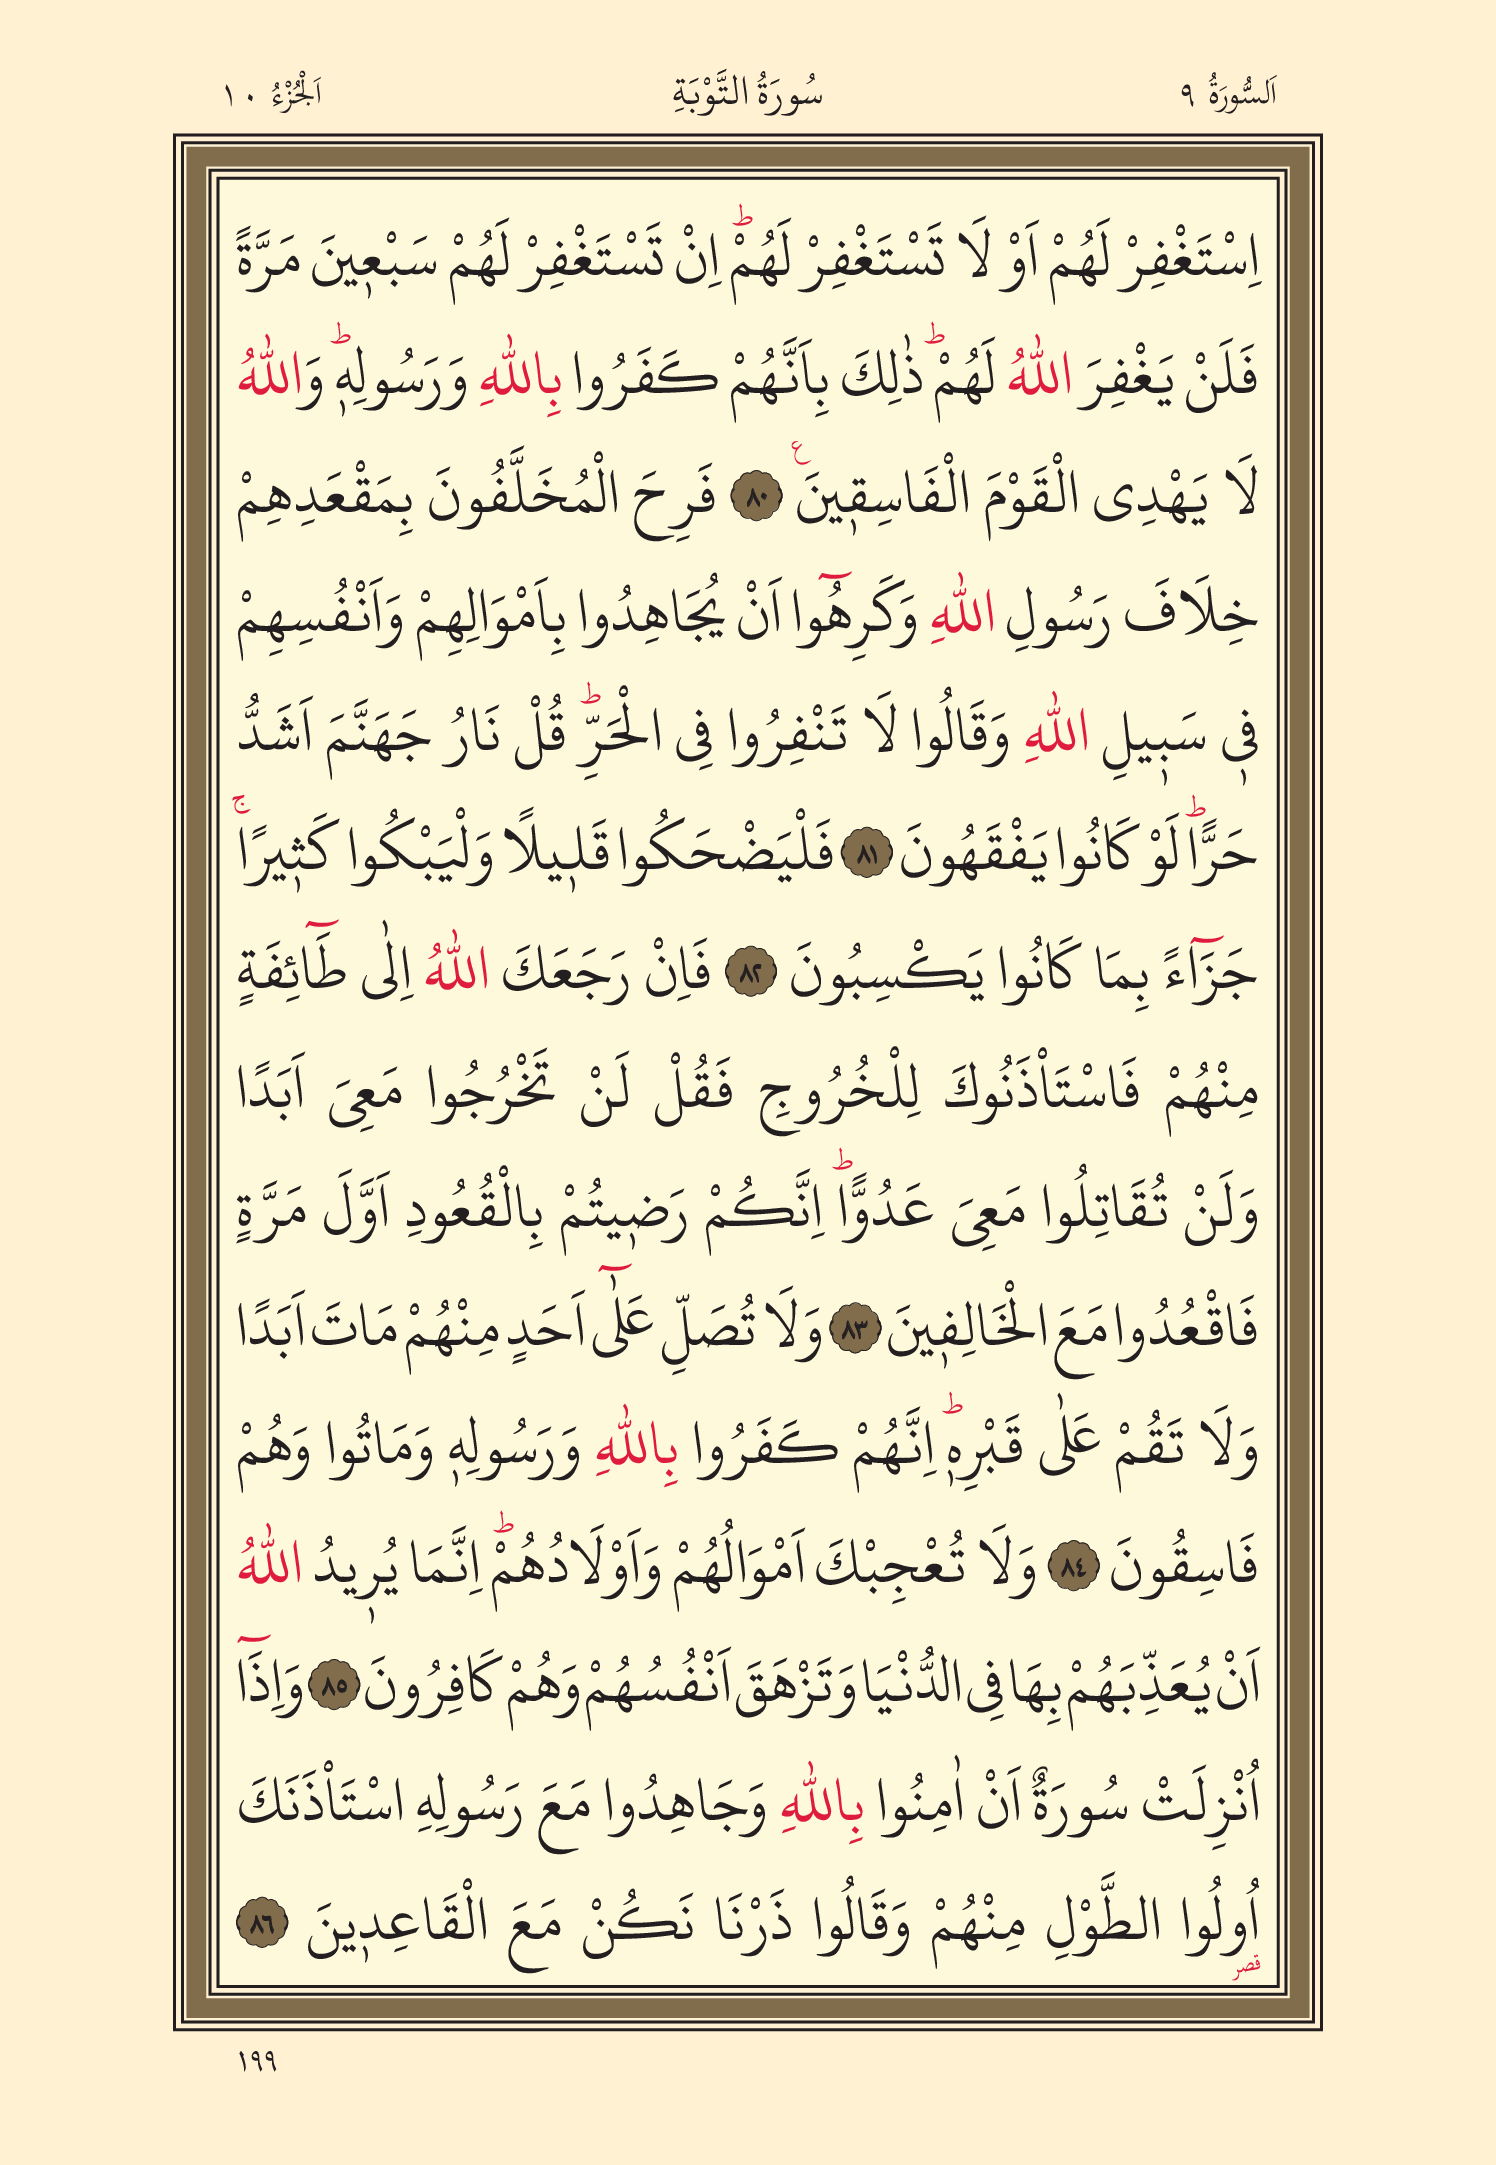 اَلسُّورَةُ ٩ سُورَةُ التَّوْبَةِ اَلْجُزْءُ ١٠
اِسْتَغْفِرْ لَهُمْ اَوْ لَا تَسْتَغْفِرْ لَهُمْۜ اِنْ تَسْتَغْفِرْ لَهُمْ سَبْع۪ينَ مَرَّةً
فَلَنْ يَغْفِرَ اللّٰهُ لَهُمْۜ ذٰلِكَ بِاَنَّهُمْ كَفَرُوا بِاللّٰهِ وَرَسُولِه۪ۜ وَاللّٰهُ
لَا يَهْدِى الْقَوْمَ الْفَاسِق۪ينَ۟ ٨٠ فَرِحَ الْمُخَلَّفُونَ بِمَقْعَدِهِمْ
خِلَافَ رَسُولِ اللّٰهِ وَكَرِهُٓوا اَنْ يُجَاهِدُوا بِاَمْوَالِهِمْ وَاَنْفُسِهِمْ
ف۪ى سَب۪يلِ اللّٰهِ وَقَالُوا لَا تَنْفِرُوا فِى الْحَرِّۜ قُلْ نَارُ جَهَنَّمَ اَشَدُّ
حَرًّاۜ لَوْ كَانُوا يَفْقَهُونَ ٨١ فَلْيَضْحَكُوا قَل۪يلًا وَلْيَبْكُوا كَث۪يرًاۚ
جَزَٓاءً بِمَا كَانُوا يَكْسِبُونَ ٨٢ فَاِنْ رَجَعَكَ اللّٰهُ اِلٰى طَٓائِفَةٍ
مِنْهُمْ فَاسْتَاْذَنُوكَ لِلْخُرُوجِ فَقُلْ لَنْ تَخْرُجُوا مَعِىَ اَبَدًا
وَلَنْ تُقَاتِلُوا مَعِىَ عَدُوًّاۜ اِنَّكُمْ رَض۪يتُمْ بِالْقُعُودِ اَوَّلَ مَرَّةٍ
فَاقْعُدُوا مَعَ الْخَالِف۪ينَ ٨٣ وَلَا تُصَلِّ عَلٰٓى اَحَدٍ مِنْهُمْ مَاتَ اَبَدًا
وَلَا تَقُمْ عَلٰى قَبْرِه۪ۜ اِنَّهُمْ كَفَرُوا بِاللّٰهِ وَرَسُولِه۪ وَمَاتُوا وَهُمْ
فَاسِقُونَ ٨٤ وَلَا تُعْجِبْكَ اَمْوَالُهُمْ وَاَوْلَادُهُمْۜ اِنَّمَا يُر۪يدُ اللّٰهُ
اَنْ يُعَذِّبَهُمْ بِهَا فِى الدُّنْيَا وَتَزْهَقَ اَنْفُسُهُمْ وَهُمْ كَافِرُونَ ٨٥ وَاِذَٓا
اُنْزِلَتْ سُورَةٌ اَنْ اٰمِنُوا بِاللّٰهِ وَجَاهِدُوا مَعَ رَسُولِهِ اسْتَاْذَنَكَ
اُو۬لُوا الطَّوْلِ مِنْهُمْ وَقَالُوا ذَرْنَا نَكُنْ مَعَ الْقَاعِد۪ينَ ٨٦
قصر
١٩٩